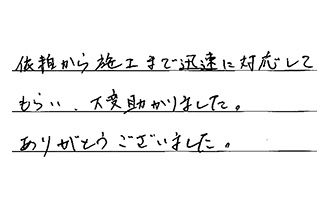 依頼から施工まで迅速に対応して
もらい、大変助かりました。
ありがとうございました。